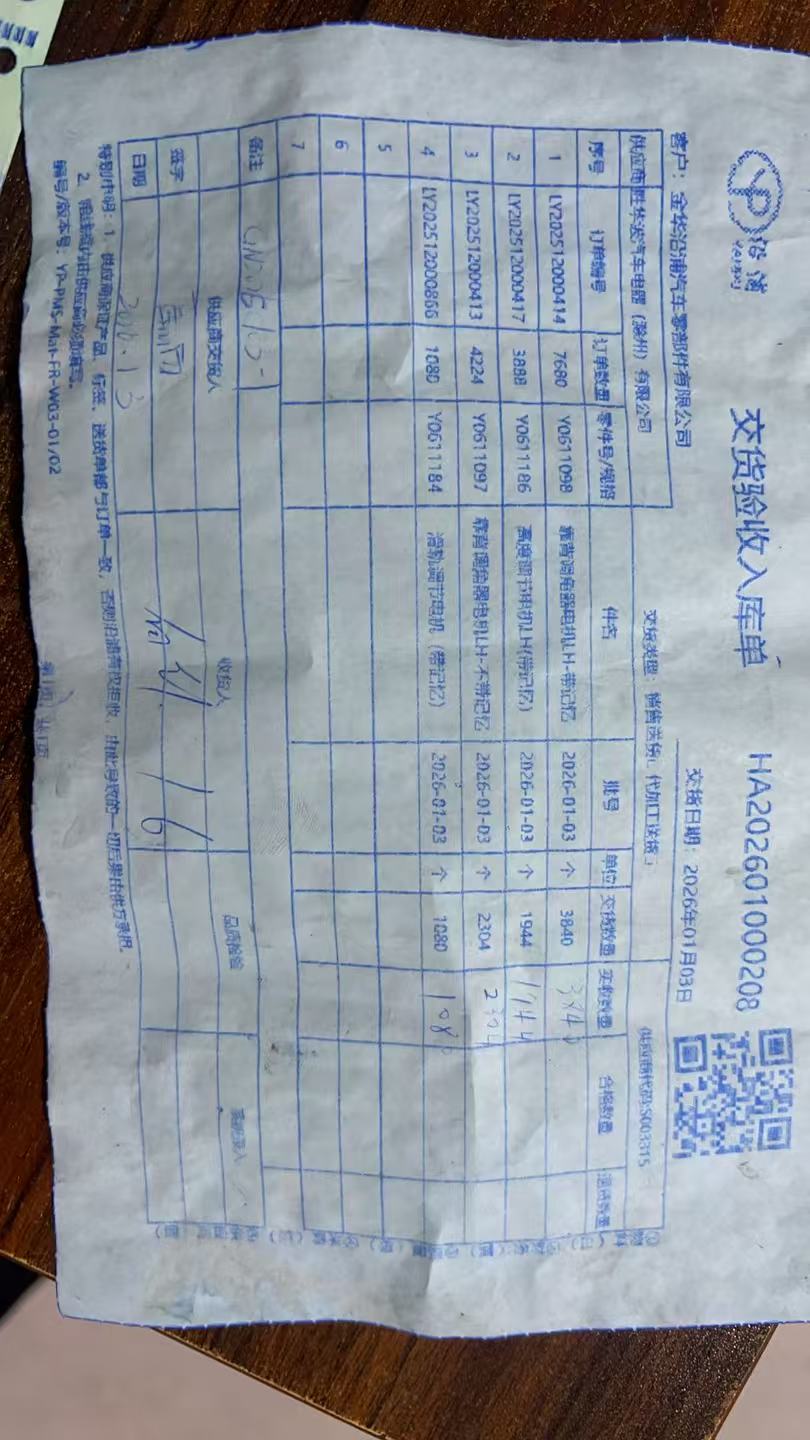 沿浦
YANPU
交货验收入库单
HA202601000208
客户：金华沿浦汽车零部件有限公司
交货日期：2026年01月03日
供应商 胜华波汽车电器（滁州）有限公司 交货类型：销售送货 代加工送货 供应商代码:S003315
序号 订单编号 订单数量 零件号/规格 件名 批号 单位 交货数量 实收数量 合格数量 退货数量
1 LY202512000414 7680 Y0611098 靠背调角器电机LH-带记忆 2026-01-03 个 3840 3840
2 LY202512000417 3888 Y0611186 高度调节电机LH(带记忆) 2026-01-03 个 1944 1944
3 LY202512000413 4224 Y0611097 靠背调角器电机LH-不带记忆 2026-01-03 个 2304 2304
4 LY202512000866 1080 Y0611184 滑轨调节电机（带记忆） 2026-01-03 个 1080 1080
5
6
7
备注
供应商交货人 收货人 品质检验 系统录入
签字
日期 2026.1.3 1.6
特别申明：1、供应商保证产品、标签、送货单都与订单一致，否则沿浦有权拒收，由此导致的一切后果由供方承担。
2、粗线框内由供应商必须填写。
编号/版本号：YP-PMS-Mat-FR-W03-01/02
第1页，共1页